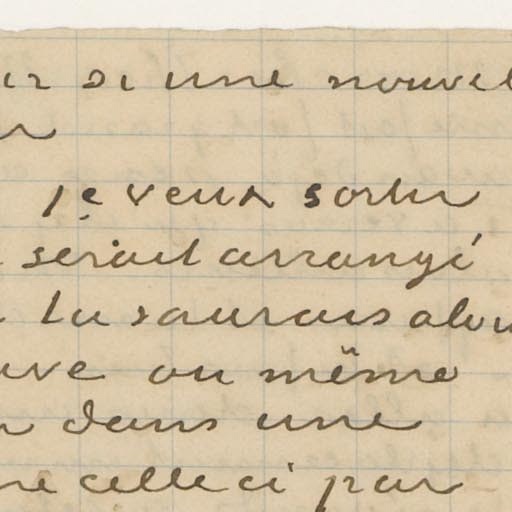 si une nouvel
je veux sortir
serait arrangé
tu saurais alors
uve ou même
dans une
re celle ci par